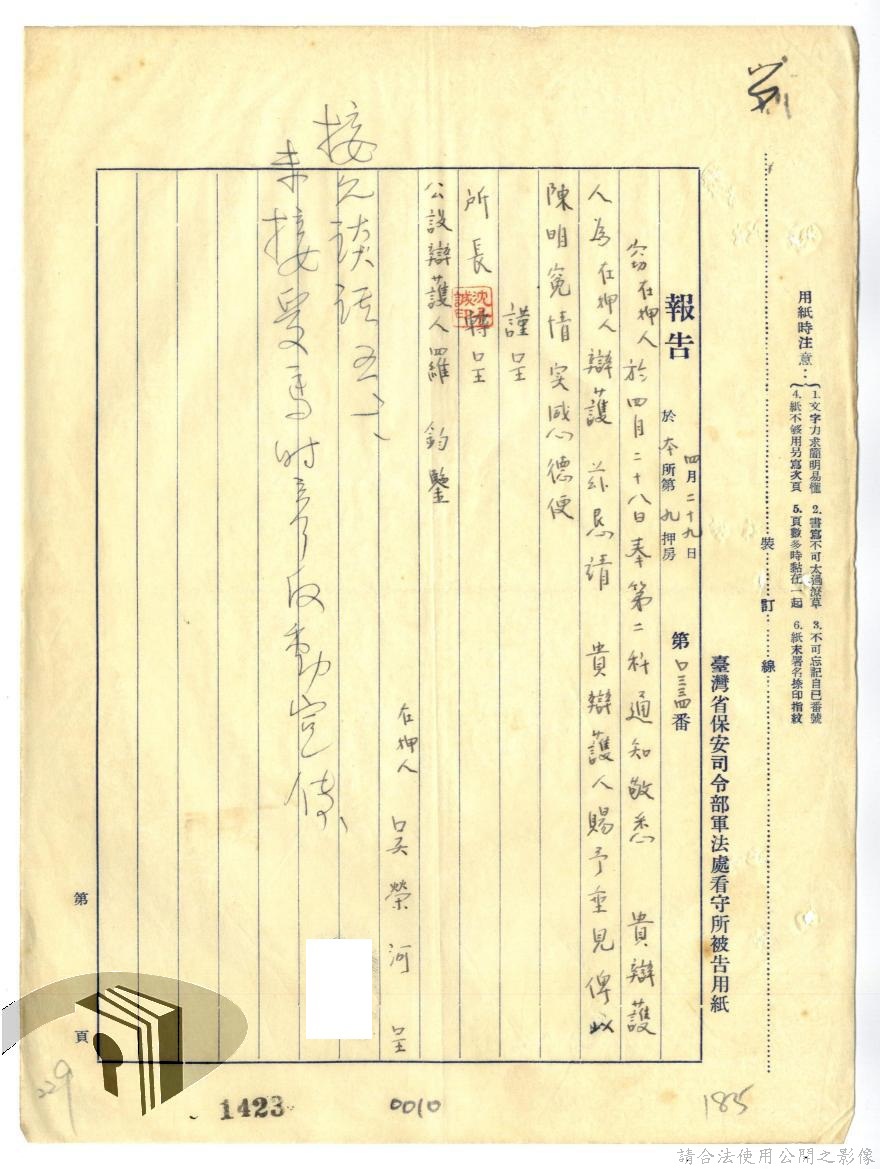 用紙時注意：
1.文字力求簡明易懂 2.書寫不可太過潦草 3.不可忘記自己番號
4.紙不够用另寫次頁 5.頁數多時黏在一起 6.紙末署名捺印指紋
裝訂線
臺灣省保安司令部軍法處看守所被告用紙
報告 四月二十九日 於本所第九押房 第口三三四番
竊在押人於四月二十八日奉第二科通知敬悉 貴辯護
人為在押人辯護 茲懇請 貴辯護人賜予重見俾以
陳明冤情實感德便
謹呈
所長 轉呈
沈誠印
公設辯護人羅 鈞鑒
在押人 吳榮河 呈
接見談話
未接受 反動宣傳
第 頁
229
1423
0010
185
請合法使用公開之影像